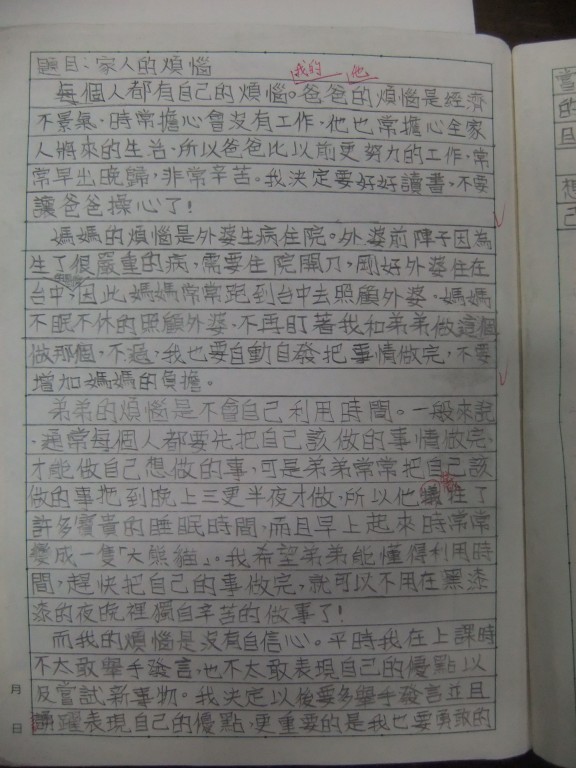 題目：家人的煩惱
我的 他
每個人都有自己的煩惱。爸爸的煩惱是經濟
不景氣，時常擔心會沒有工作，他也常擔心全家
人將來的生活，所以爸爸比以前更努力的工作，常
常早出晚歸，非常辛苦。我決定要好好讀書，不要
讓爸爸操心了！
媽媽的煩惱是外婆生病住院。外婆前陣子因為
生了很嚴重的病，需要住院開刀，剛好外婆住在
台中，因此媽媽常常跑到台中去照顧外婆，媽媽
不眠不休的照顧外婆，不再盯著我和弟弟做這個
做那個，不過，我也要自動自發把事情做完，不要
增加媽媽的負擔。
弟弟的煩惱是不會自己利用時間。一般來說
，通常每個人都要先把自己該做的事情做完，
才能做自己想做的事，可是弟弟常常把自己該
做的事拖到晚上三更半夜才做，所以他犧牲了
許多寶貴的睡眠時間，而且早上起來時常常
變成一隻「大熊貓」。我希望弟弟能懂得利用時
間，趕快把自己的事做完，就可以不用在黑漆
漆的夜晚裡獨自辛苦的做事了！
而我的煩惱是沒有自信心。平時我在上課時
不太敢舉手發言，也不太敢表現自己的優點以
及嘗試新事物。我決定以後要多舉手發言並且
踴躍表現自己的優點，更重要的是我也要勇敢的
月
日
的
且
想
己